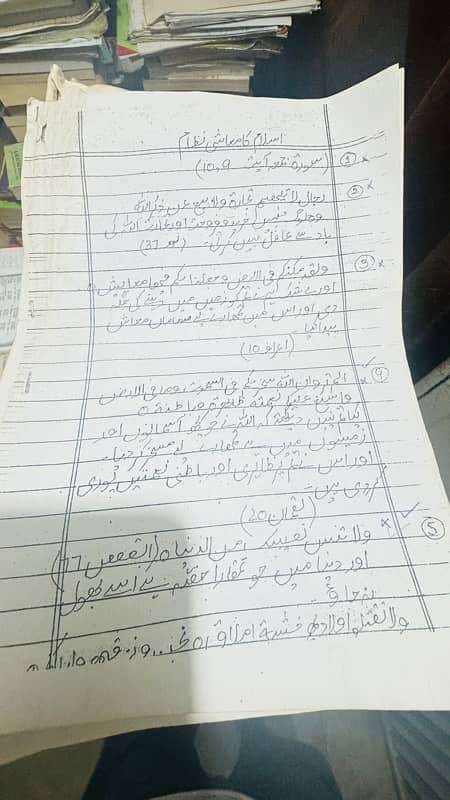 اسلام کا معاشی نظام
① (سورۃ جمعہ آیت 9، 10)
② رجال لا تلھیھم تجارۃ ولا بیع عن ذکر اللہ
وہ لوگ جنہیں خرید و فروخت اور تجارت اللہ کی
یاد سے غافل نہیں کرتی۔ (نور 37)
③ ولقد مکنکم فی الارض وجعلنا لکم فیھا معایش
اور بے شک ہم نے تم کو زمین میں رہنے کی جگہ
دی اور اس میں تمہارے لیے سامان معاش
پیدا کیا
(اعراف 10)
④ الم تروا ان اللہ سخر لکم ما فی السموت وما فی الارض
واسبغ علیکم نعمہ ظاہرۃ وباطنۃ
کیا تم نہیں دیکھتے کہ اللہ نے جو کچھ آسمانوں اور
زمینوں میں ہے تمہارے لیے مسخر کر دیا۔
اور اس نے تم پر ظاہری اور باطنی نعمتیں پوری
کر دی ہیں۔
(لقمان 20)
⑤ ولا تنس نصیبک من الدنیا (القصص 77)
اور دنیا میں جو تمہارا حصہ ہے اسے بھول
نہ جاؤ۔
ولا تقتلوا اولادکم خشیۃ املاق نحن نرزقھم